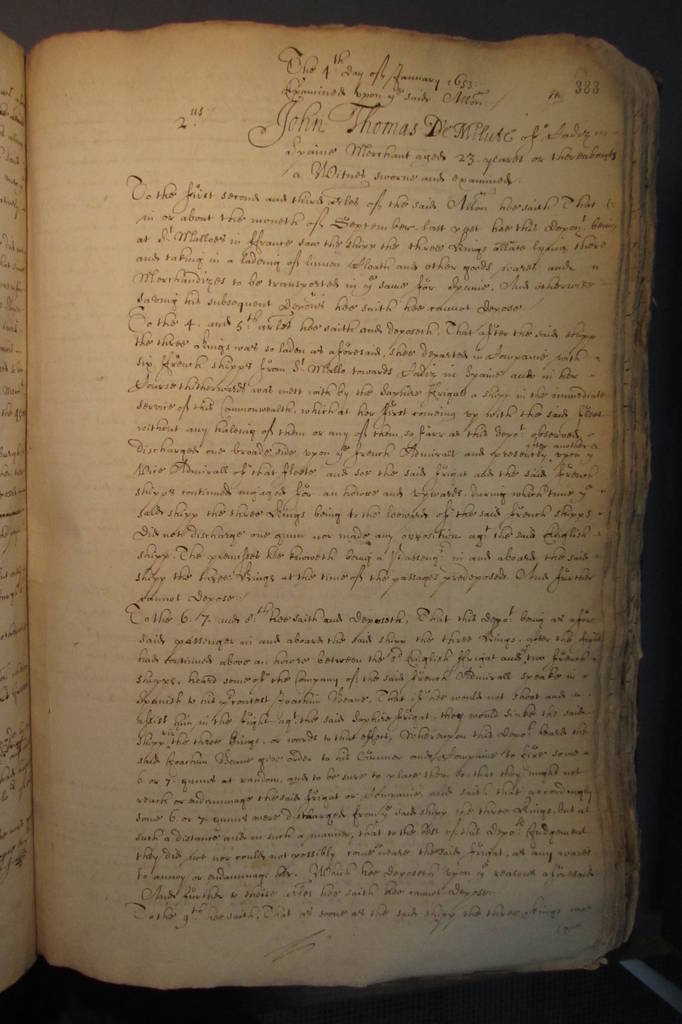 The 4th day of January 1653.
Examined upon ye said Allon.
388
2us
John Thomas De Milute of Cadiz in
Spaine Merchant aged 23. yeares or thereabouts
a Witnes sworne and examined.
To the first second and third arles of the said Allon hee saith That
in or about the moneth of September last past hee this depot being
at St Malloes in ffrance saw the shipp the three Kings lying there
and taking in a ladeing of linnen Cloath and other goods, wares and
Merchandizes to be transported in ye same for Spaine, And otherwise
saveing his subsequent deposns hee saith hee cannot depose.
To the 4. and 5th arles hee saith and deposeth, That after the said shipp
the three Kings was so laden as aforesaid, shee departed in Companie with
six ffrench shipps from St Mallo towards Cadiz in Spaine and in her
Course thitherwards was mett with by the Saphire frigat a shipp in the immediate
service of this Commonwealth, which at her first comeing up with the said fleet
without any haleing of them or any of them, so farr as this depot observed,
discharged one broade side upon ye french Admirall and presently after another upon ye
Vice Admirall of that fleete, and soe the said frigat and the said french
shipps continued ingaged for an howre and upwards, during which time ye
said shipp the three Kings being to the leeward of the said french shipps
did not discharge one gunn nor made any opposition agt the said English
shipp. The premisses hee knoweth being a Passengr in and aboard the said
shipp the three Kings at the time of the passages predeposed. And further
cannot depose.
To the 6. 7. and 8th hee saith and deposeth, That this depot being as afore
said passenger in and aboard the said shipp the three Kings, after the fight
had continued above an howre between the sd English ffrigat and two french
shipps, heard some of the Company of the said french Admirall speake in
Spanish to his Joachim Beane, That if hee would not shoot and
assist him in the fight agt the said Saphire frigat, they would sinke the said
shipp the three Kings, or words to that effect, Whereupon this depot heard the
said Joachim Beane give order to his Gunner and Companie to fire some
6 or 7. gunns at random, and to be sure to place them so that they might not
reach or endammage the said frigat or Companie, and saith that accordingly
some 6. or 7. gunns were discharged from ye said shipp the three Kings, but at
such a distance and in such a manner, that to the best of this depots Judgement
they did not nor could not possibly come neare the said frigat, as any wayes
to annoy or endammage her. Which hee deposeth upon ye reasons aforesaid.
And further to theise arles hee saith hee cannot depose.
To the 9th hee saith, That as soone as the said shipp the three Kings